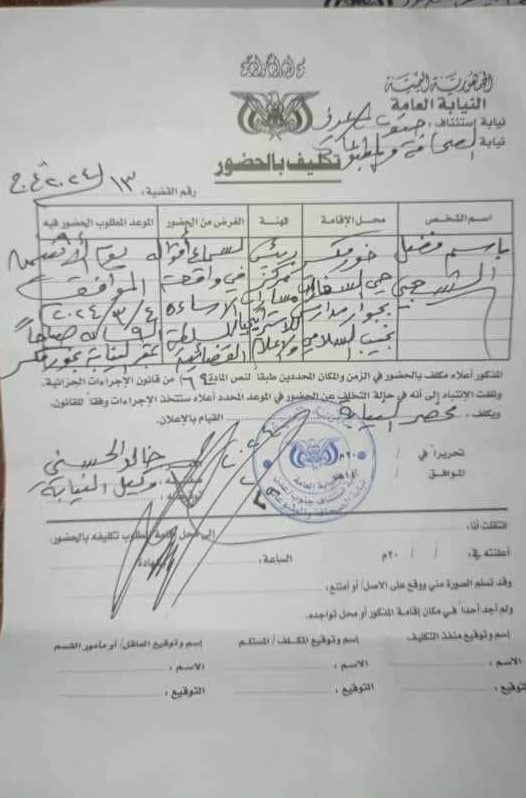 الجمهورية اليمنية
النيابة العامة
نيابة إستئناف: جنوب عدن
نيابة الصحافة والمطبوعات
تكليف بالحضور
رقم القضية: ١٣ لـ ٢٠٢٤ ج ع
إسم الشخص محل الإقامة المهنة الغرض من الحضور الموعد المطلوب الحضور فيه
باسم فضل خور مكسر رئيس لسماع أقواله يوم الاثنين
الشعبي حي السفارات مركز في واقعة الموافق
بجوار مدارس مسارات الإساءة ٢٠٢٤/٣/٤
نجيب السلامي للاستراتيجيا والإعلام للسلطة القضائية الساعة ٩ صباحاً
بمقر النيابة بخور مكسر
المذكور أعلاه مكلف بالحضور في الزمن والمكان المحددين طبقا لنص المادة ٦٩ من قانون الإجراءات الجزائية.
ونلفت الإنتباه إلى أنه في حالة التخلف عن الحضور في الموعد المحدد أعلاه ستتخذ الإجراءات وفقاً للقانون.
ويكلف: محضر النيابة القيام بالإعلان.
تحريراً في / / ٢٠م
الموافق / /
خالد الحسني
وكيل النيابة
النيابة العامة
انتقلت أنا: إلى محل إقامة المطلوب تكليفه بالحضور.
أعلنته في: / / ٢٠م الساعة:
وقد تسلم الصورة مني ووقع على الاصل/ أو أمتنع:
ولم أجد أحداً في مكان إقامة المذكور أو محل تواجده.
إسم وتوقيع منفذ التكليف إسم وتوقيع المكلف / المستلم إسم وتوقيع العاقل/ أو مأمور القسم
الاسم: الاسم: الاسم:
التوقيع: التوقيع: التوقيع: